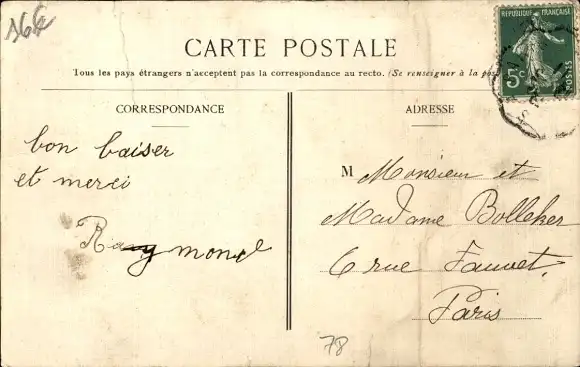 16€
RÉPUBLIQUE FRANÇAISE
5c
POSTES
CARTE POSTALE
Tous les pays étrangers n'acceptent pas la correspondance au recto. (Se renseigner à la
CORRESPONDANCE
ADRESSE
bon baiser
et merci
Raymond
M Monsieur et
Madame Bolleker
6 rue Fauvet,
Paris
78